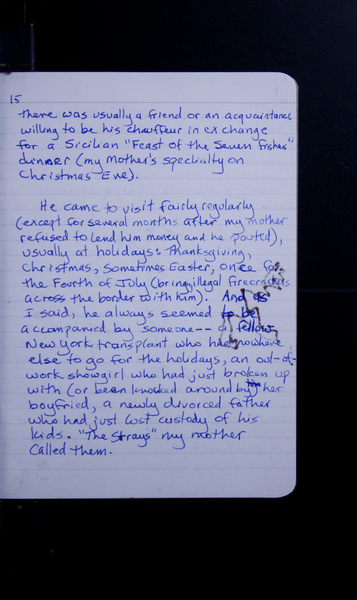 15
there was usually a friend or an acquaintance
willing to be his chauffeur in exchange
for a Sicilian "Feast of the Seven Fishes"
dinner (my mother's specialty on
Christmas Eve).
He came to visit fairly regularly
(except for several months after my mother
refused to lend him money and he pouted),
usually at holidays: Thanksgiving,
Christmas, sometimes Easter, once for
the Fourth of July (bringing illegal firecrackers
across the border with him). And as
I said, he always seemed to be
accompanied by someone-- a fellow
New York transplant who had nowhere
else to go for the holidays, an out-of-
work showgirl who had just broken up
with (or been knocked around by) her
boyfried, a newly divorced father
who had just lost custody of his
kids. "The Strays" my mother
called them.